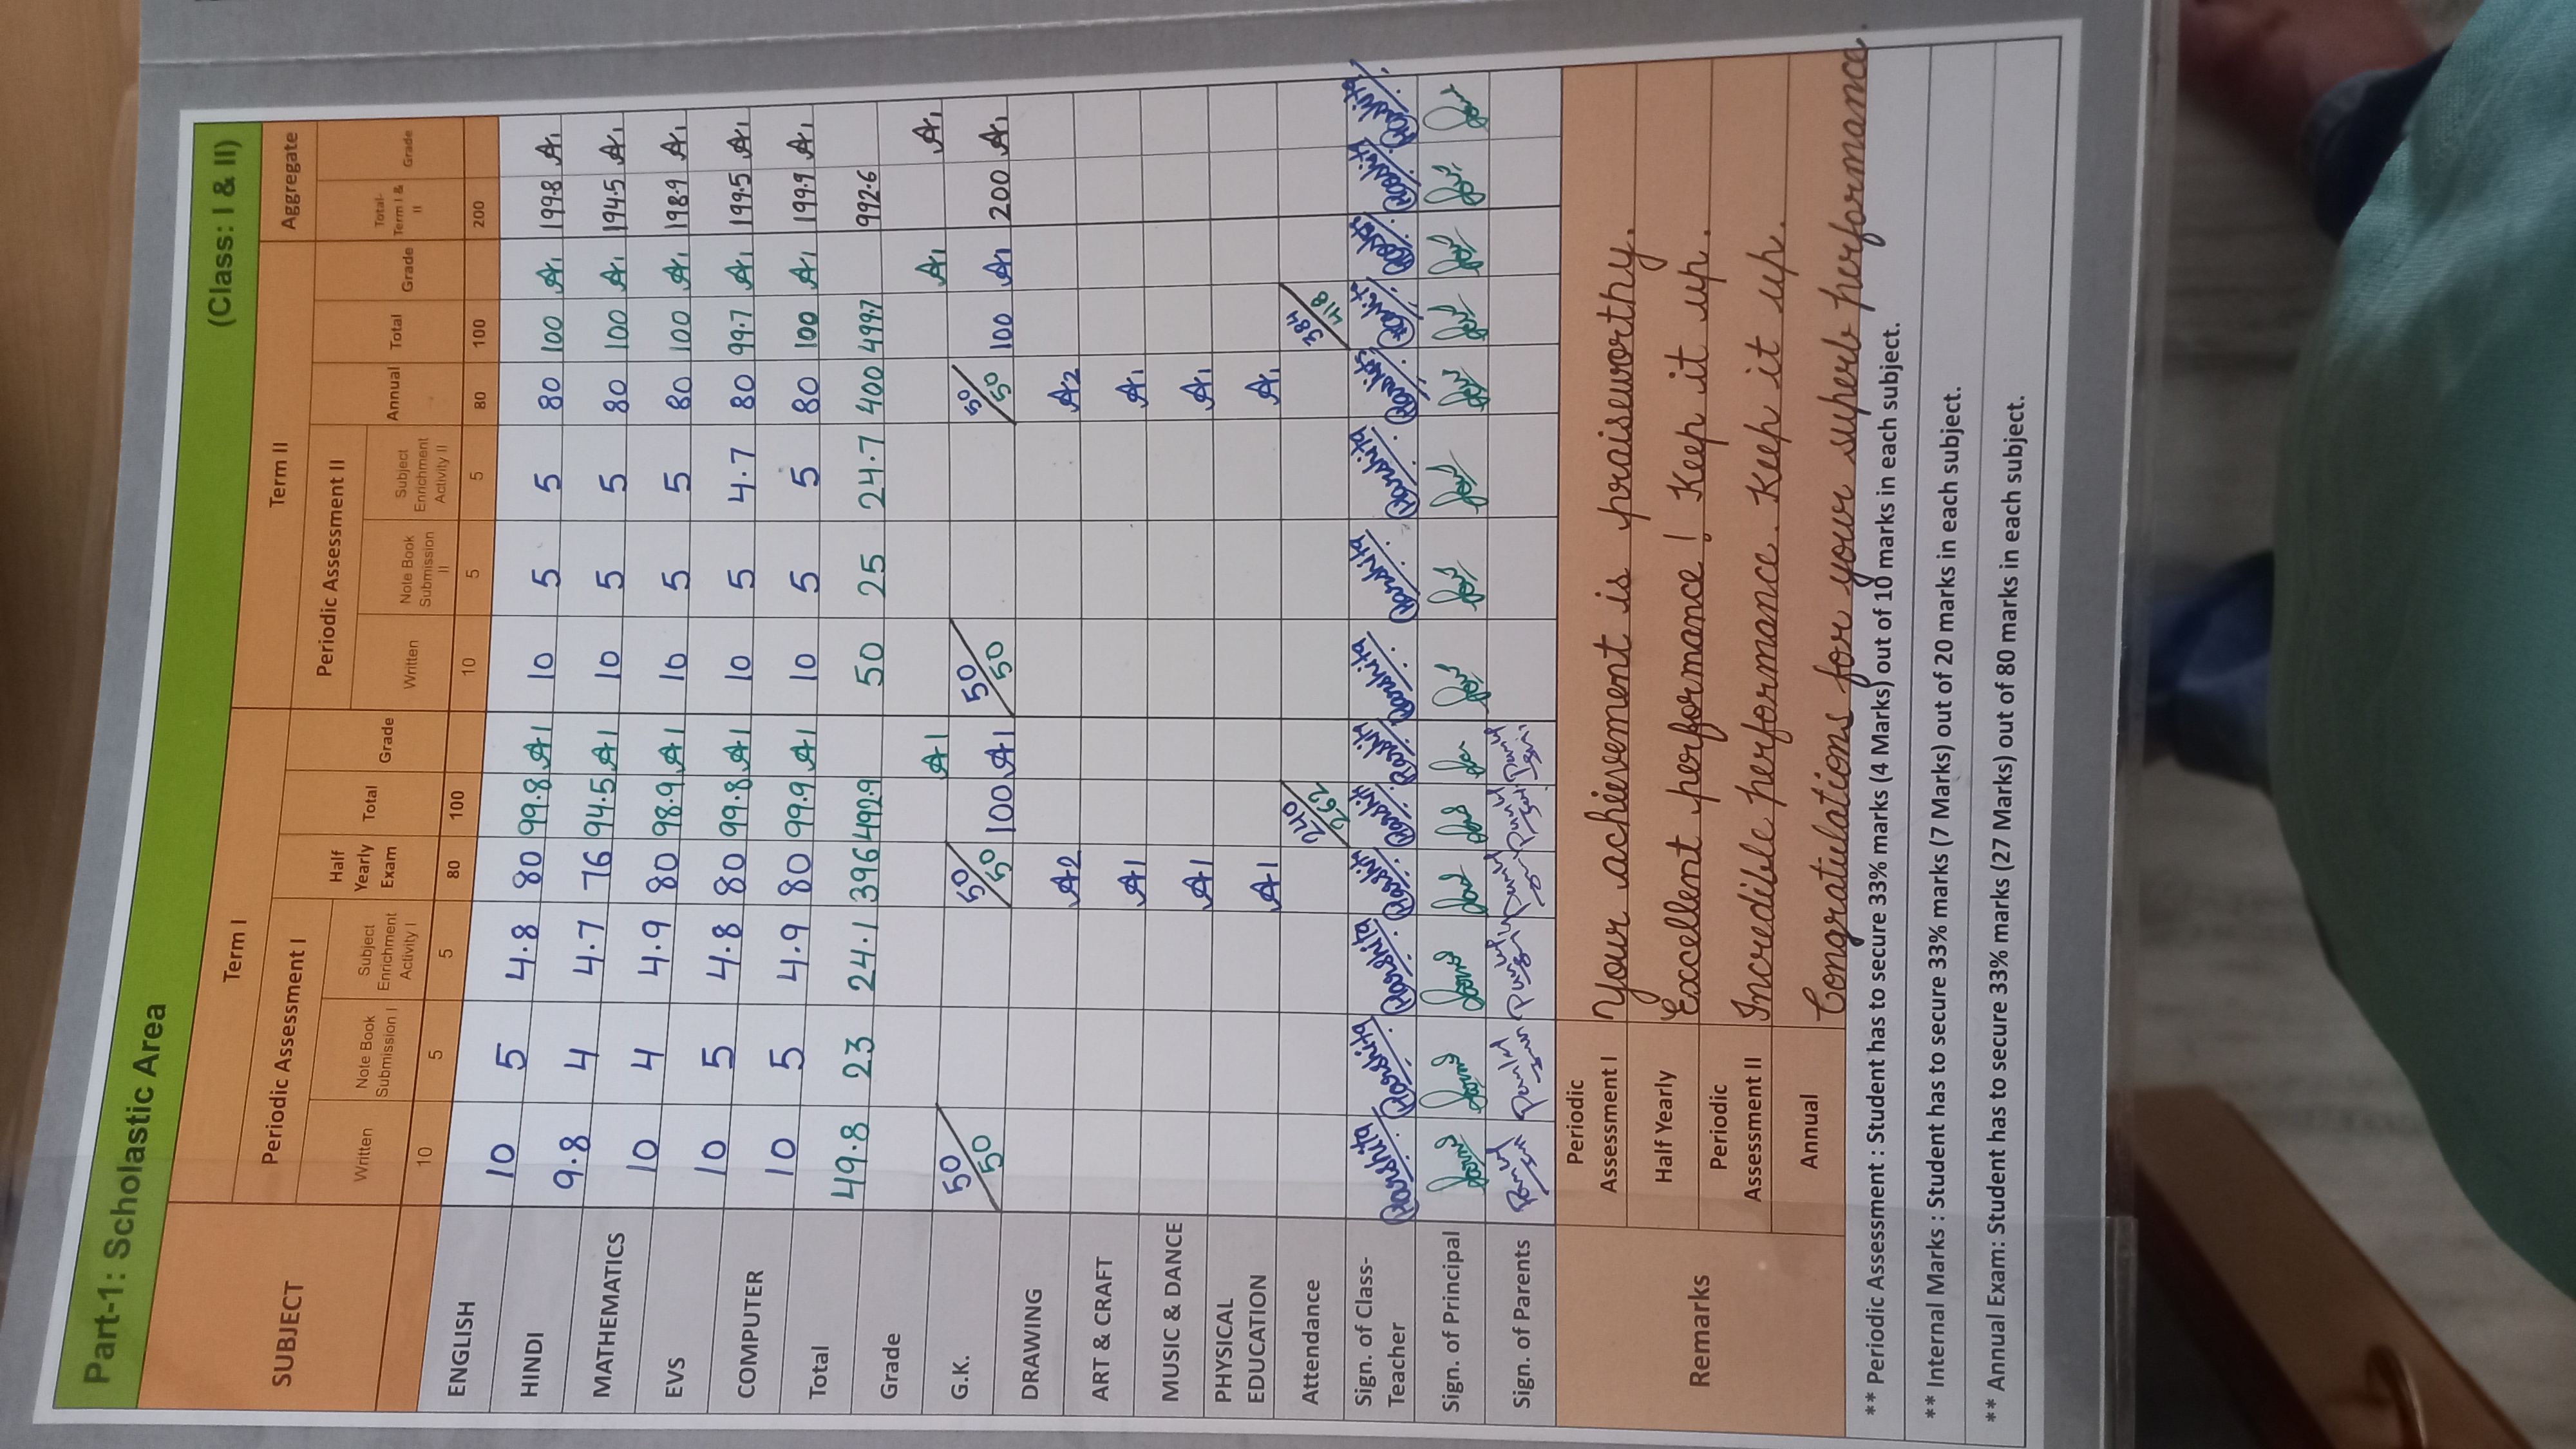 Part-1: Scholastic Area (Class: I & II)
SUBJECT Term I Term II Aggregate
Periodic Assessment I Half Yearly Exam Total Grade Periodic Assessment II Annual Total Grade Total- Term I & II Grade
Written Note Book Submission I Subject Enrichment Activity I Written Note Book Submission II Subject Enrichment Activity II
10 5 5 80 100 10 5 5 80 100 200
ENGLISH 10 5 4.8 80 99.8 A1 10 5 5 80 100 A1 199.8 A1
HINDI 9.8 4 4.7 76 94.5 A1 10 5 5 80 100 A1 194.5 A1
MATHEMATICS 10 4 4.9 80 98.9 A1 10 5 5 80 100 A1 198.9 A1
EVS 10 5 4.8 80 99.8 A1 10 5 4.7 80 99.7 A1 199.5 A1
COMPUTER 10 5 4.9 80 99.9 A1 10 5 5 80 100 A1 199.9 A1
Total 49.8 23 24.1 396 492.9 50 25 24.7 400 499.7 992.6
Grade A1 A1 A1
G.K. 50/50 50/50 100 A1 50/50 50/50 100 A1 200 A1
DRAWING A2 A2
ART & CRAFT A1 A1
MUSIC & DANCE A1 A1
PHYSICAL EDUCATION A1 A1
Attendance 240/262 384/418
Sign. of Class-Teacher
Sign. of Principal
Sign. of Parents
Remarks
Periodic Assessment I Your achievement is praiseworthy.
Half Yearly Excellent performance! Keep it up.
Periodic Assessment II Incredible performance. Keep it up.
Annual Congratulations for your superb performance.
** Periodic Assessment : Student has to secure 33% marks (4 Marks) out of 10 marks in each subject.
** Internal Marks : Student has to secure 33% marks (7 Marks) out of 20 marks in each subject.
** Annual Exam: Student has to secure 33% marks (27 Marks) out of 80 marks in each subject.